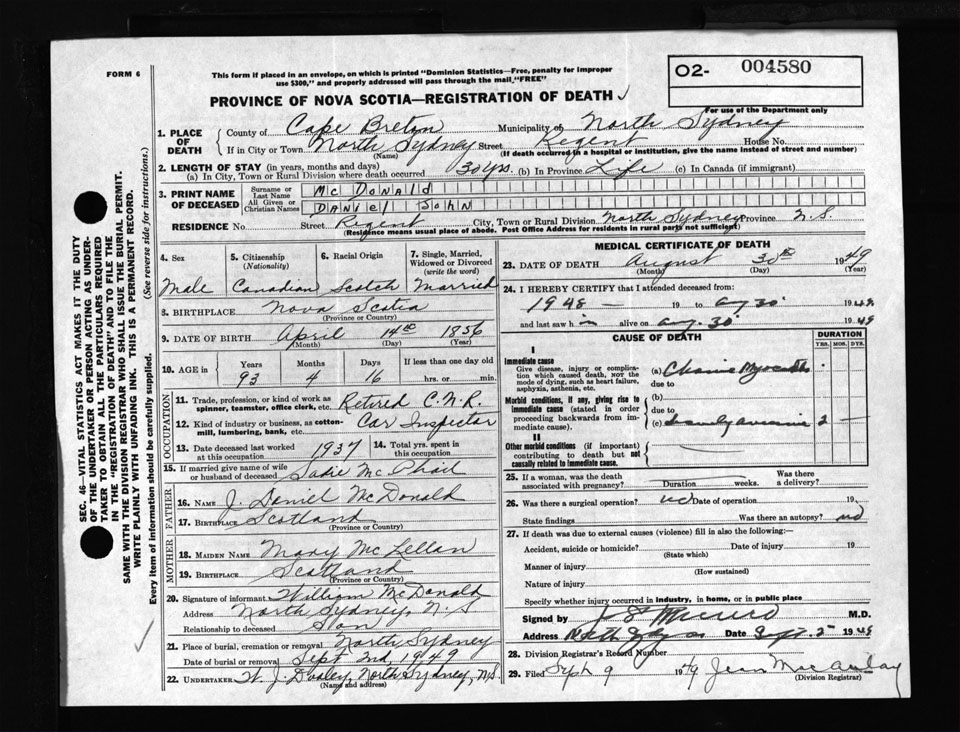 FORM 6
This form if placed in an envelope, on which is printed "Dominion Statistics—Free, penalty for improper
use $300," and properly addressed will pass through the mail, "FREE"
O2- 004580
PROVINCE OF NOVA SCOTIA—REGISTRATION OF DEATH ✓
For use of the Department only
SEC. 46 - VITAL STATISTICS ACT MAKES IT THE DUTY
OF THE UNDERTAKER OR PERSON ACTING AS UNDER-
TAKER TO OBTAIN ALL THE PARTICULARS REQUIRED
IN THE "REGISTRATION OF DEATH" AND TO FILE THE
SAME WITH THE DIVISION REGISTRAR WHO SHALL ISSUE THE BURIAL PERMIT.
WRITE PLAINLY WITH UNFADING INK. THIS IS A PERMANENT RECORD.
Every item of information should be carefully supplied. (See reverse side for instructions.)
1. PLACE OF DEATH County of Cape Breton Municipality of North Sydney
If in City or Town North Sydney Street Regent House No.
(Name) (If death occurred in a hospital or institution, give the name instead of street and number)
2. LENGTH OF STAY (in years, months and days)
(a) In City, Town or Rural Division where death occurred 30 yrs. (b) In Province Life (c) In Canada (if immigrant)
3. PRINT NAME OF DECEASED Surname or Last Name McDonald
All Given or Christian Names Daniel John
RESIDENCE No. Street Regent City, Town or Rural Division North Sydney Province N.S.
(Residence means usual place of abode. Post Office Address for residents in rural parts not sufficient)
4. Sex 5. Citizenship (Nationality) 6. Racial Origin 7. Single, Married, Widowed or Divorced (write the word)
Male Canadian Scotch Married
8. BIRTHPLACE Nova Scotia
(Province or Country)
9. DATE OF BIRTH April 14th 1856
(Month) (Day) (Year)
10. AGE in Years Months Days If less than one day old
93 4 16 hrs. or min.
OCCUPATION
11. Trade, profession, or kind of work as
spinner, teamster, office clerk, etc. Retired C.N.R.
12. Kind of industry or business, as cotton-
mill, lumbering, bank, etc. Car Inspector
13. Date deceased last worked at this occupation 1937 14. Total yrs. spent in this occupation
15. If married give name of wife
or husband of deceased Sadie McPhail
FATHER
16. NAME J. Daniel McDonald
17. BIRTHPLACE Scotland
(Province or Country)
MOTHER
18. MAIDEN NAME Mary McLellan
19. BIRTHPLACE Scotland
(Province or Country)
20. Signature of informant William McDonald
Address North Sydney, N.S
Relationship to deceased Son
21. Place of burial, cremation or removal North Sydney
Date of burial or removal Sept 2nd, 1949
22. UNDERTAKER W. J. Dooley, North Sydney, N.S.
(Name and address)
MEDICAL CERTIFICATE OF DEATH
23. DATE OF DEATH August 30th 1949
(Month) (Day) (Year)
24. I HEREBY CERTIFY that I attended deceased from:
1948 - 19 to Aug 30 1949
and last saw him alive on Aug. 30 1949
CAUSE OF DEATH DURATION
YRS. MOS. DYS.
I
Immediate cause
Give disease, injury or complica-
tion which caused death, NOT the
mode of dying, such as heart failure,
asphyxia, asthenia, etc.
(a) Chronic Myocarditis
due to
Morbid conditions, if any, giving rise to
immediate cause (stated in order
proceeding backwards from im-
mediate cause).
(b)
due to
(c) 2
II
Other morbid conditions (if important)
contributing to death but not
causally related to immediate cause.
25. If a woman, was the death
associated with pregnancy? Duration weeks. Was there a delivery?
26. Was there a surgical operation? no Date of operation 19
State findings Was there an autopsy? no
27. If death was due to external causes (violence) fill in also the following:—
Accident, suicide or homicide? Date of injury 19
(State which)
Manner of injury
(How sustained)
Nature of injury
Specify whether injury occurred in industry, in home, or in public place
Signed by M.D.
Address Date Sept. 2 1949
28. Division Registrar's Record Number
29. Filed Sept 9 1949 Jean MacAulay
(Division Registrar)